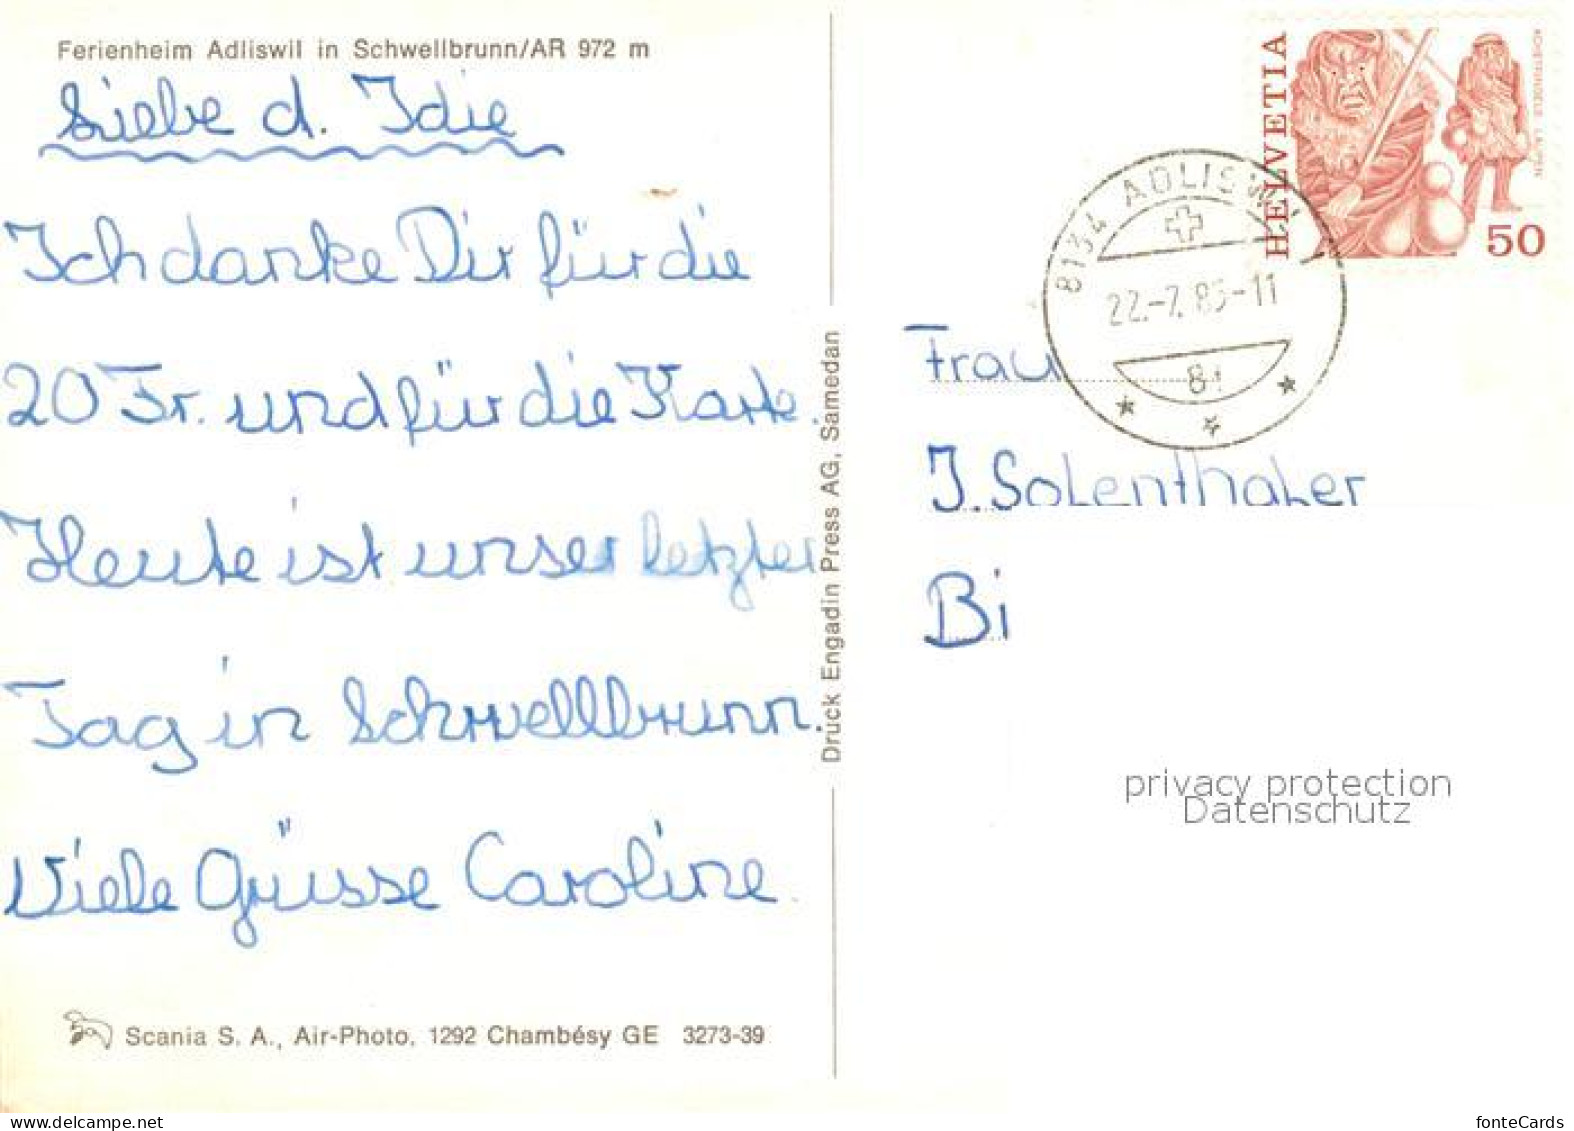 Ferienheim Adliswil in Schwellbrunn/AR 972 m
Liebe d. Idie
Ich danke Dir für die
20 Fr. und für die Karte.
Heute ist unser letzter
Tag in Schwellbrunn.
Viele Grüsse Caroline.
Scania S. A., Air-Photo, 1292 Chambésy GE 3273-39
Druck Engadin Press AG, Samedan
HELVETIA
50
8134 ADLISWIL
22.-7.85-11
Frau
J. Solenthaler
Bi
privacy protection
Datenschutz
www.delcampe.net
fonteCards